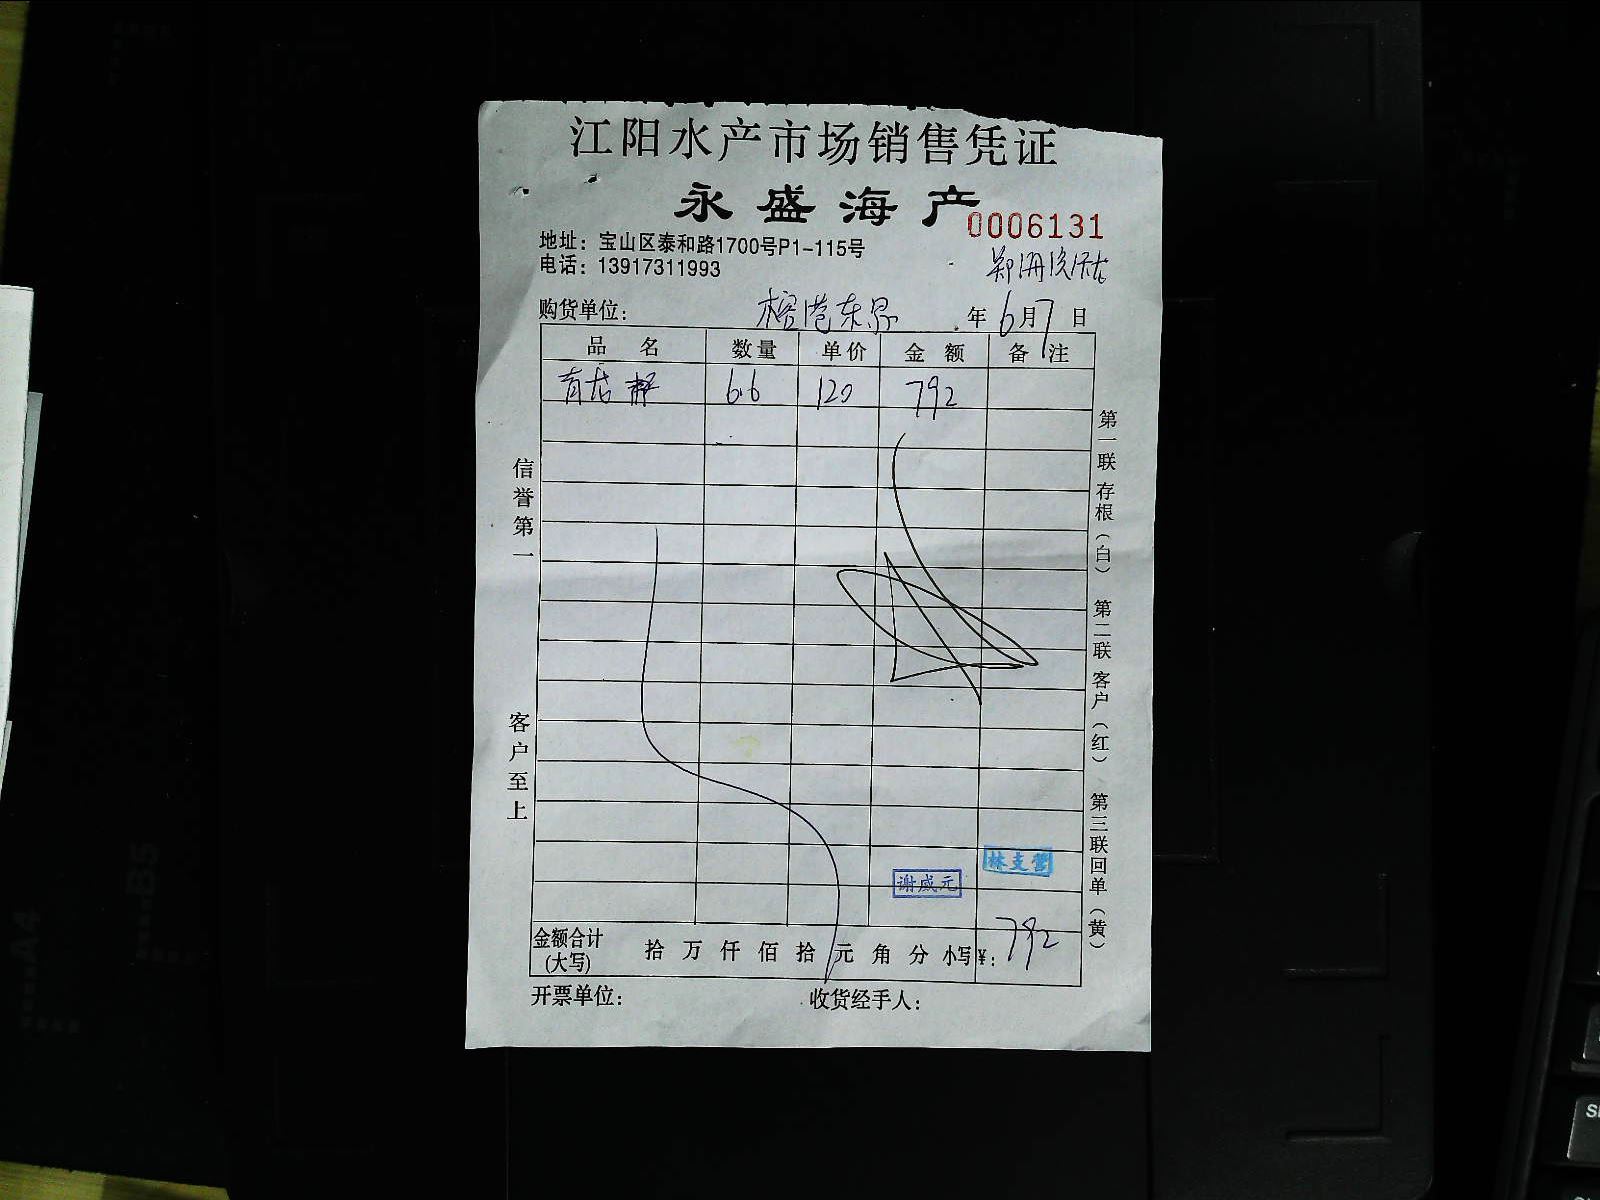 江阳水产市场销售凭证
永盛海产
0006131
地址：宝山区泰和路1700号P1-115号
电话：13917311993
购货单位： 榕港东 年6月7日
品名 数量 单价 金额 备注
6.6 120 792
信誉第一
客户至上
第一联存根（白） 第二联客户（红） 第三联回单（黄）
林支营
谢威元
金额合计 拾 万 仟 佰 拾 元 角 分 小写¥：792
(大写)
开票单位： 收货经手人：
A4
B5